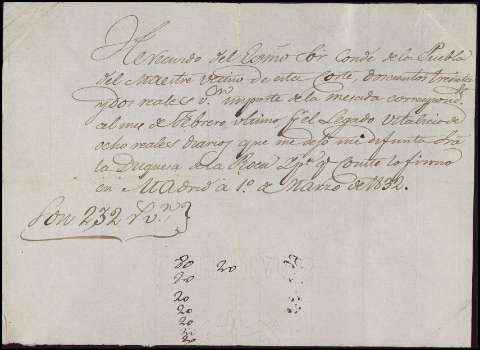 He recivido del Exmo Sor Conde de la Puebla
del Maestre Vecino de esta Corte, doscientos treinta
y dos reales v.n importe de la mesada correspond.te
al mes de Febrero ultimo p.r el Legado Vitalicio de
ocho reales diarios que me dejó mi difunta Srâ
la Duquesa de la Roca y p.a q.e conste lo firmo
en Madrid á 1.o de Marzo de 1832.
Son 232 r.s v.n
80 20
20
20
20
20
20